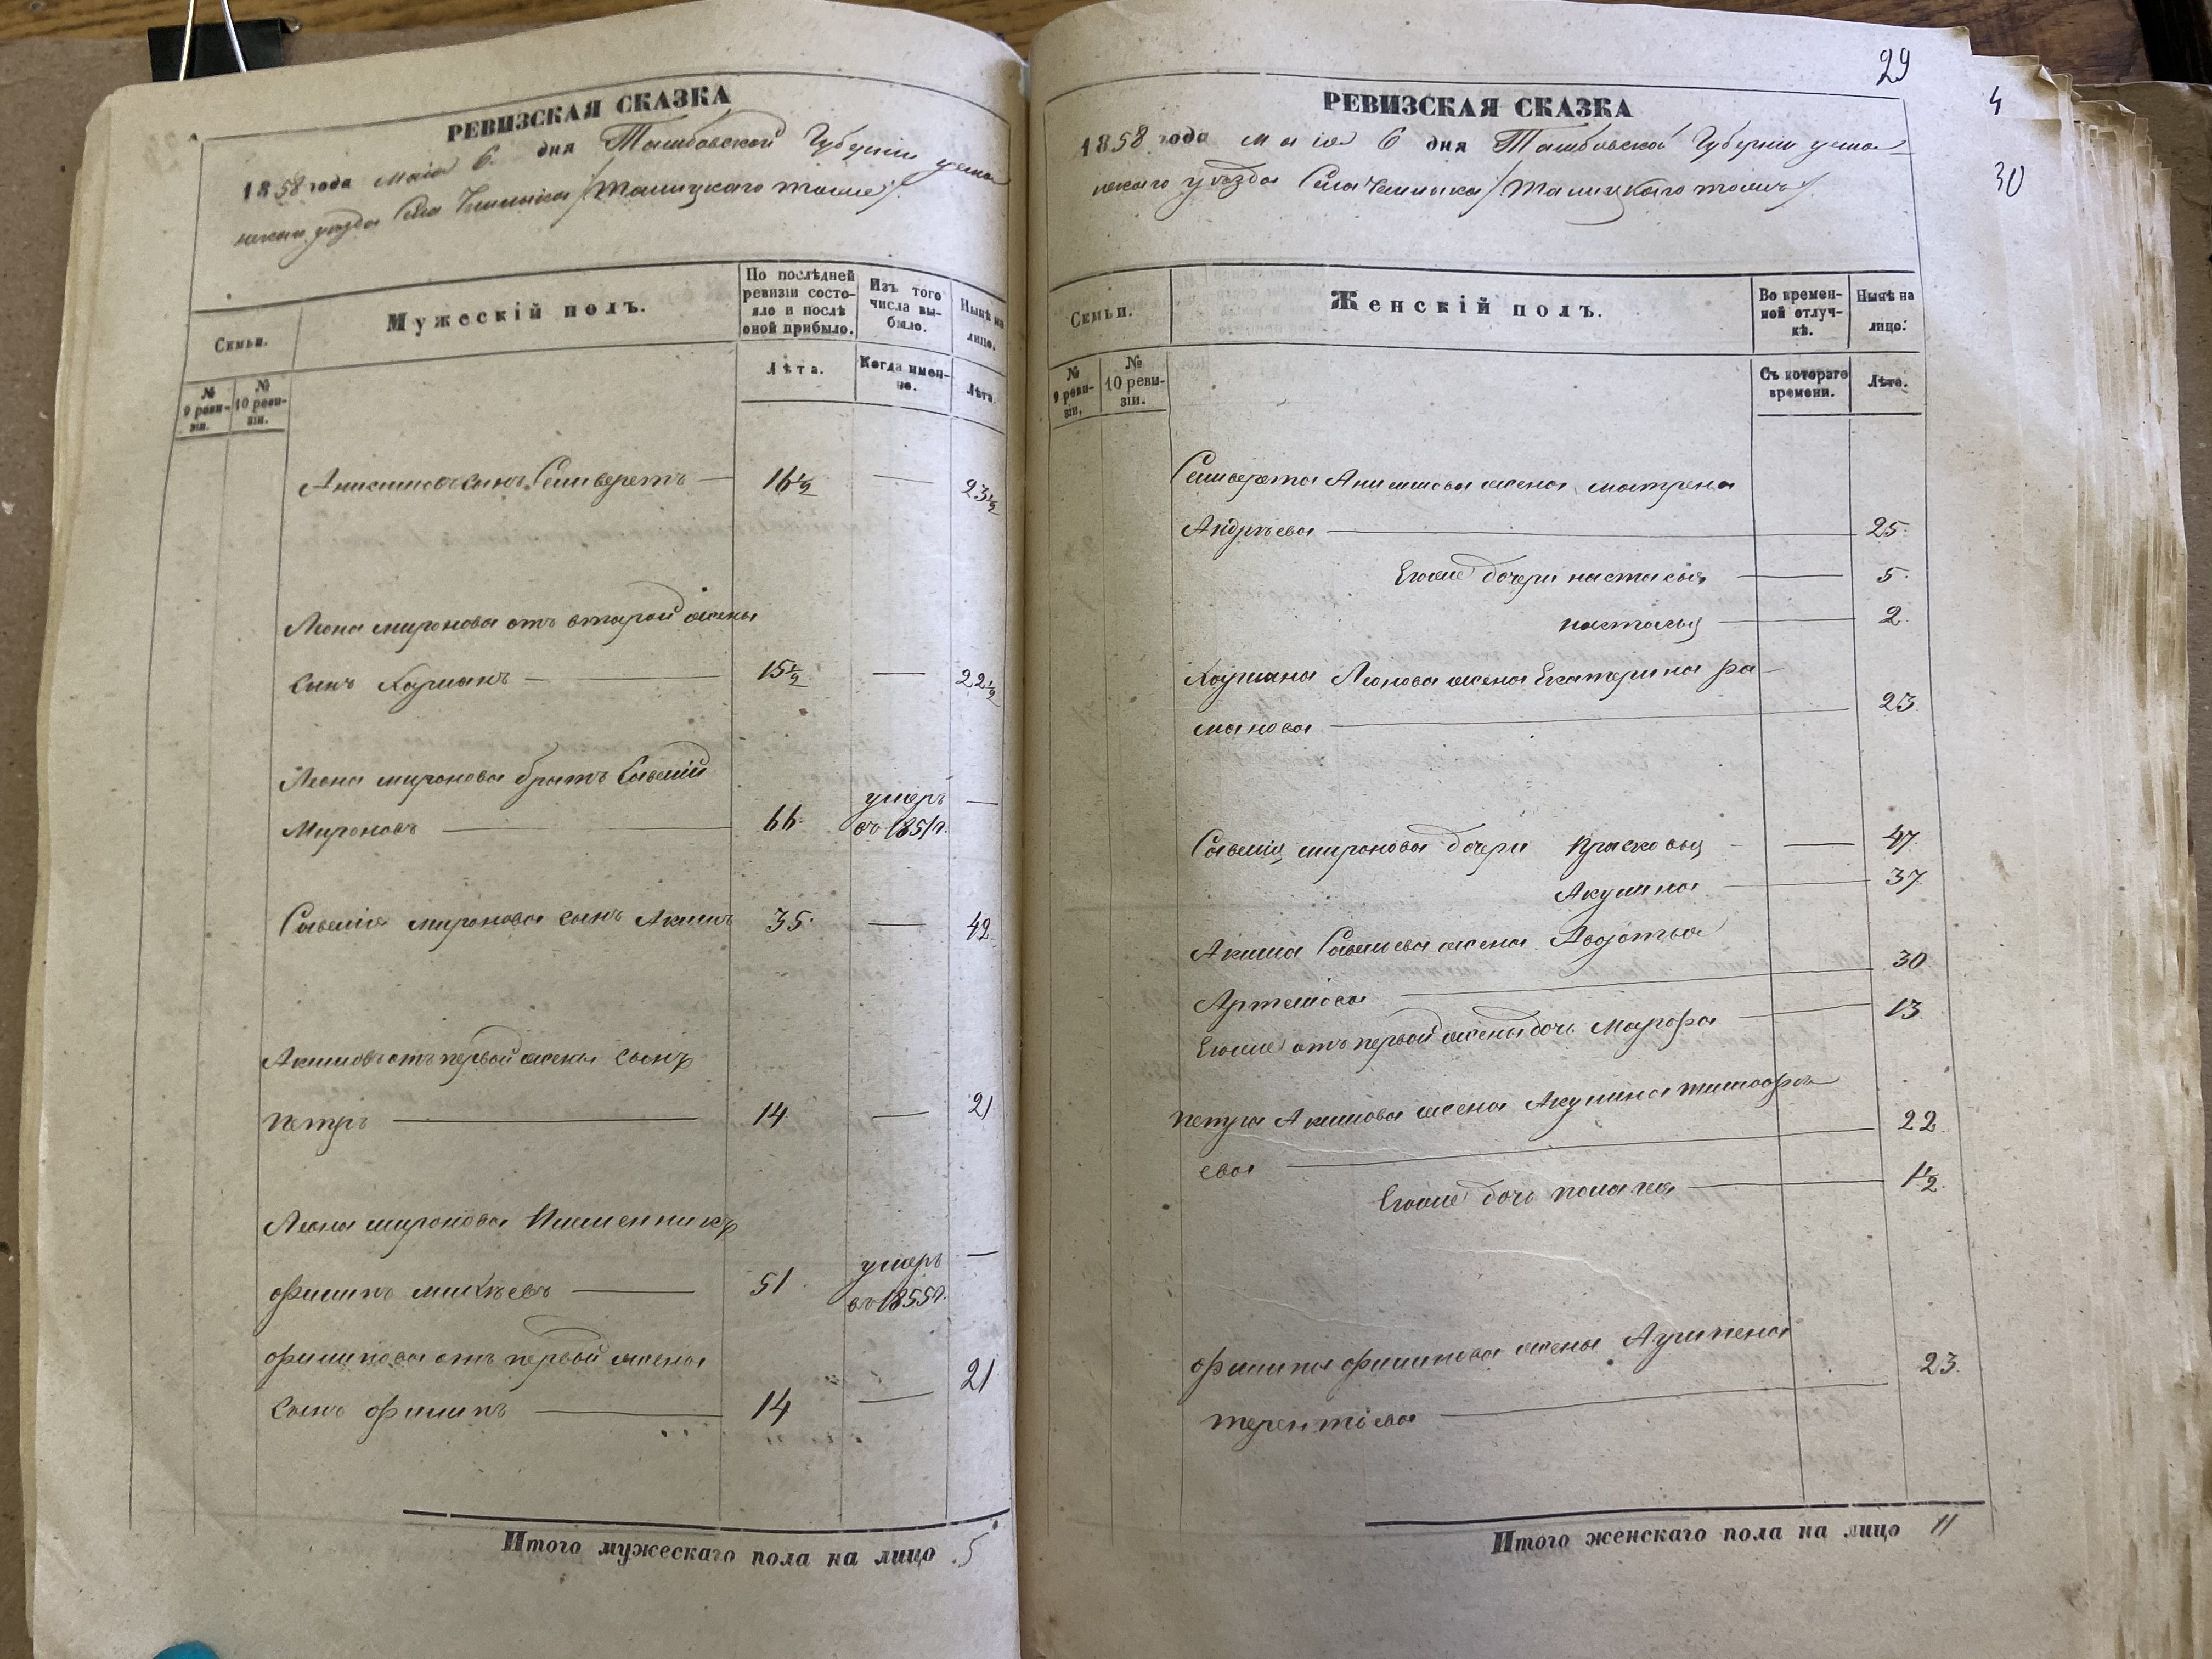 РЕВИЗСКАЯ СКАЗКА
1858 года маія 6 дня Тамбовской Губерніи усма
нскаго уѣзда Села Чемлыка /Талицкаго тожъ/
Семьи.
Мужескій полъ.
По послѣдней ревизіи состояло и послѣ оной прибыло.
Изъ того числа выбыло.
Нынѣ на лицо.
№ 9 ревизіи.
№ 10 ревизіи.
Лѣта.
Когда именно.
Лѣта.
Анисимовъ сынъ Селиверстъ — 16½ — 23½
Леона миронова отъ второй жены
сынъ Харланъ — 15½ — 22½
Леона миронова братъ Савелій
Мироновъ — 66 умеръ въ 1851г. —
Савелія миронова сынъ Акимъ 35 — 42
Акимовъ отъ первой жены сынъ
петръ — 14 — 21
Леона миронова Племенникъ
филипъ михѣевъ — 51 умеръ въ 1855г. —
филипова отъ первой жены
сынъ филипъ — 14 — 21
Итого мужескаго пола на лицо 5
29
4
30
РЕВИЗСКАЯ СКАЗКА
1858 года маія 6 дня Тамбовской Губерніи усма
нскаго уѣзда Села Чемлыка /Талицкаго тожъ/
Семьи.
Женскій полъ.
Во временной отлучкѣ.
Нынѣ на лицо.
№ 9 ревизіи.
№ 10 ревизіи.
Съ котораго времени.
Лѣта.
Селиверста Анисимова жена матрена
Андрѣева — 25
Егоже дочери настасья — 5
настасья — 2
Харлана Леонова жена Екатерина ра
манова — 23
Савелія миронова дочери прасковья — 47
Акулина — 37
Акима Савельева жена Авдотья
Артемова — 30
Егоже отъ первой жены дочь Марфа — 13
петра Акимова жена Акулина тимофе
ева — 22
Егоже дочь пелагея — ½
филипа филипова жена Агрипена
терентьева — 23
Итого женскаго пола на лицо 11